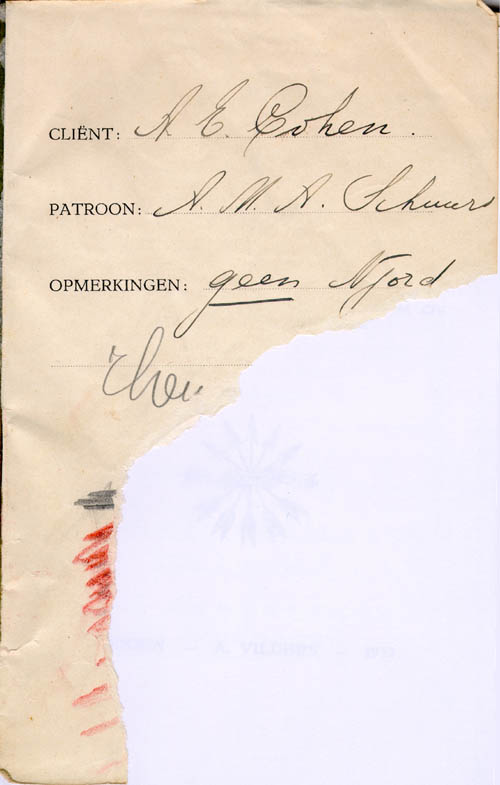 CLIËNT: A. E. Cohen.
PATROON: A. M. A. Schuurs
OPMERKINGEN: geen Njord